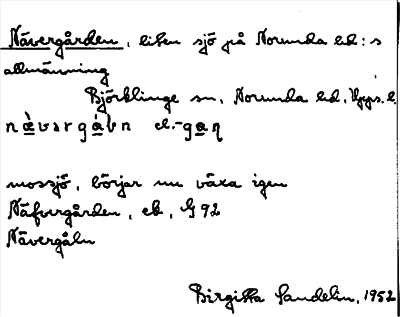 Nävergården, liten sjö på Norunda hd:s
allmänning
Björklinge sn, Norunda hd, Upps. l.
nä̀vərgåɳ el. -gaɳ
mossjö, börjar nu växa igen
Näfvergården, ek, G 92
Nävergåln
Birgitta Sandelin, 1952